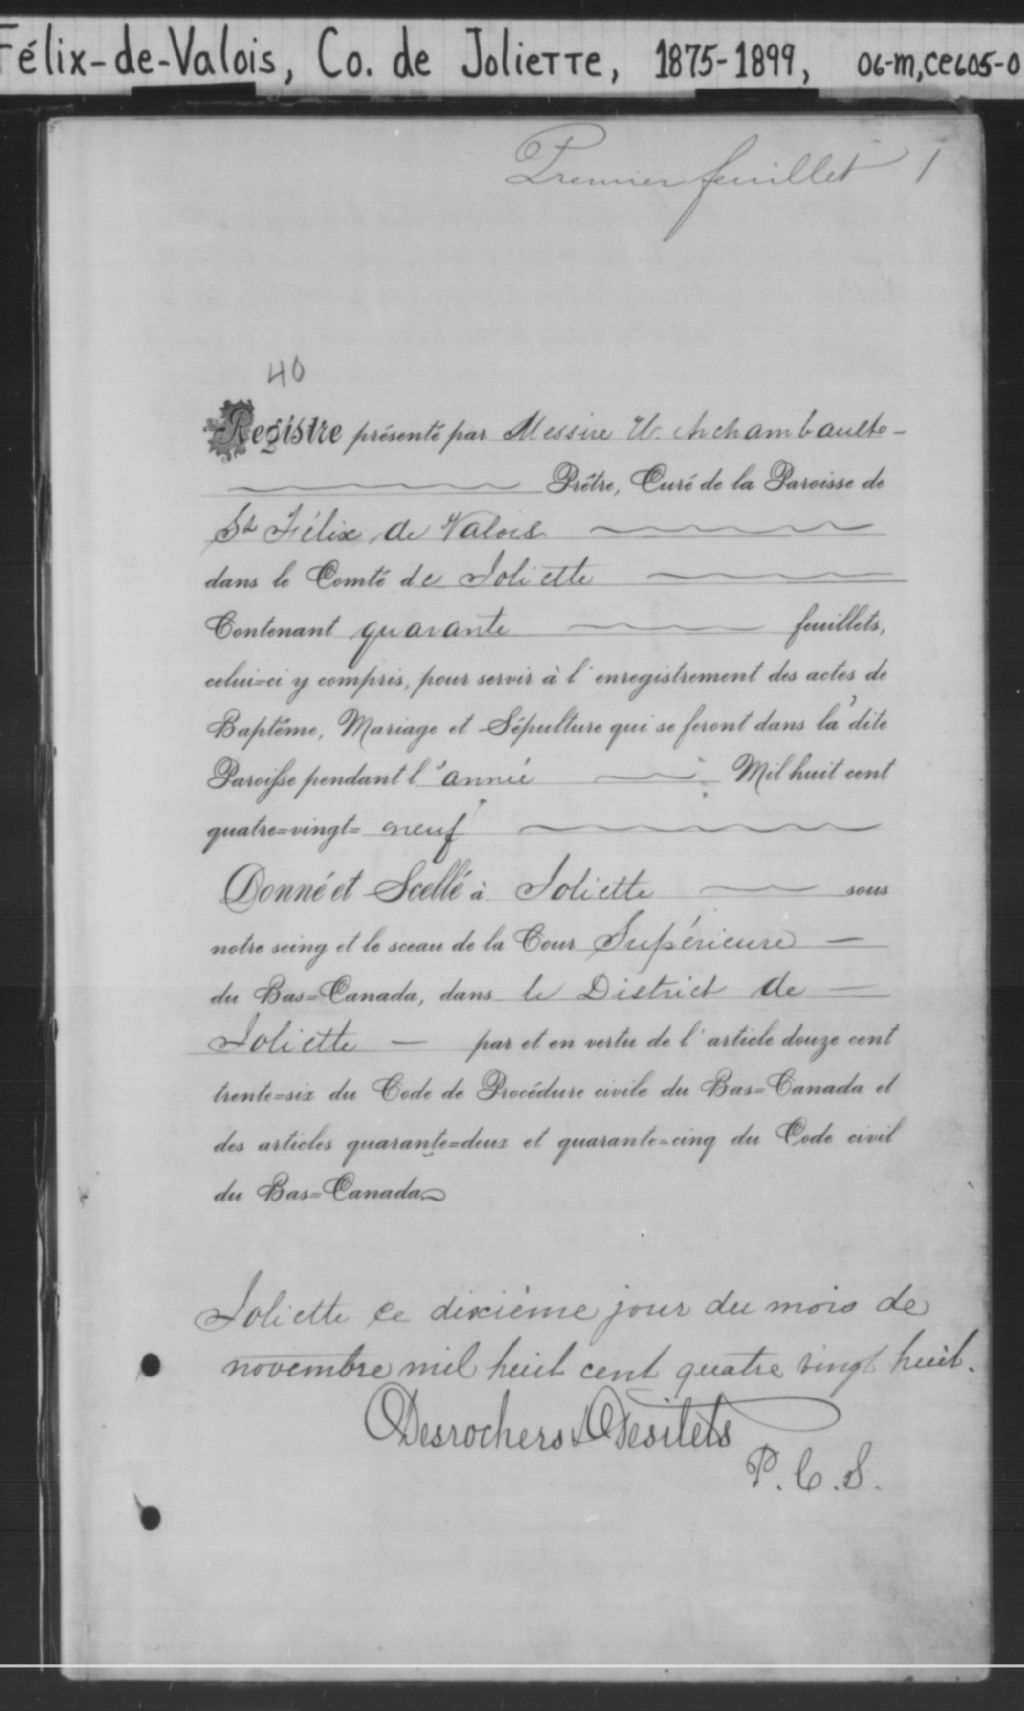 Félix-de-Valois, Co. de Joliette, 1875-1899, 06-M,CE605-0
Premier feuillet 1
40
Registre présenté par Messire U. Archambault
Prêtre, Curé de la Paroisse de
St Félix de Valois
dans le Comté de Joliette
Contenant quarante feuillets,
celui=ci y compris, pour servir à l'enregistrement des actes de
Baptême, Mariage et Sépulture qui se feront dans la dite
Paroisse pendant l'année Mil huit cent
quatre=vingt= neuf
Donné et Scellé à Joliette sous
notre seing et le sceau de la Cour Supérieure
du Bas=Canada, dans le District de
Joliette par et en vertu de l'article douze cent
trente=six du Code de Procédure civile du Bas=Canada et
des articles quarante=deux et quarante=cinq du Code civil
du Bas=Canada
Joliette ce dixième jour du mois de
novembre mil huit cent quatre vingt huit.
Desrochers & Desilets
P. C. S.